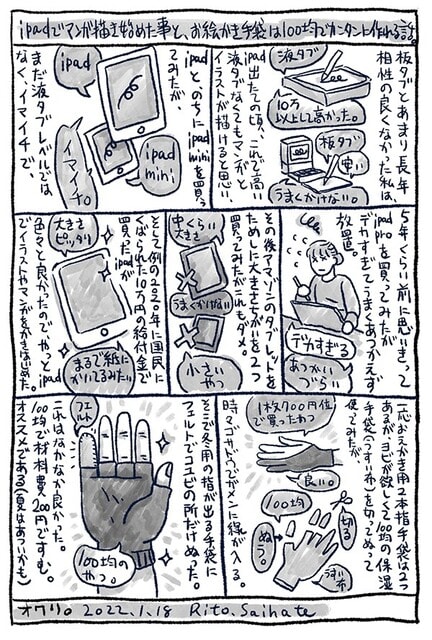 ipadでマンガ描き始めた事と、お絵かき手袋は100均でカンタンに作れる話。
板タブとあまり長年
相性の良くなかった私は、
液タブ
10万
以上して高かった。
板タブ
安い
うまくかけない。
ipad出たての頃、これで高い
液タブなくてもマンガと
イラストが描けると思い、
ipadとのちにipad miniを買っ
てみたが、
ipad
ipad
mini
イマイチ。
まだ液タブレベルでは
なく、イマイチで、
5年くらい前に思いきって
ipad proを買ってみたが
デカすぎてうまくあつかえず
放置。
デカすぎる
あつかい
づらい
その後アマゾンのタブレットを
ためしに大きさちがいを2つ
買ってみたがこれもダメ。
中くらい
大きさ
うまくかけない
小さい
やつ
そして例の2020年に国民に
くばられた10万円の給付金で
買ったipadが
大きさ
ピッタリ
まるで紙に
かいてるみたい。
色々と良かったのでやっとipad
でイラストやマンガをかきはじめた。
一応おえかき用2本指手袋は2つ
あるが、3こ目が欲しくて100均の保湿
手袋(うすい布)を切ってぬって
使ってみたが、
1枚700円位
で買ったやつ
良い。
100均
切る
ぬう。
うすい布
時々ゴサドウでガメンに線が入る。
そこで冬用の指が出る手袋に
フェルトでコユビの所だけぬった。
フェルト
100均の
やつ。
これはなかなか良かった。
100均で材料費200円ですむ。
オススメである(夏はあついかも)
オワリ。 2022.1.18 Rito.Saihate